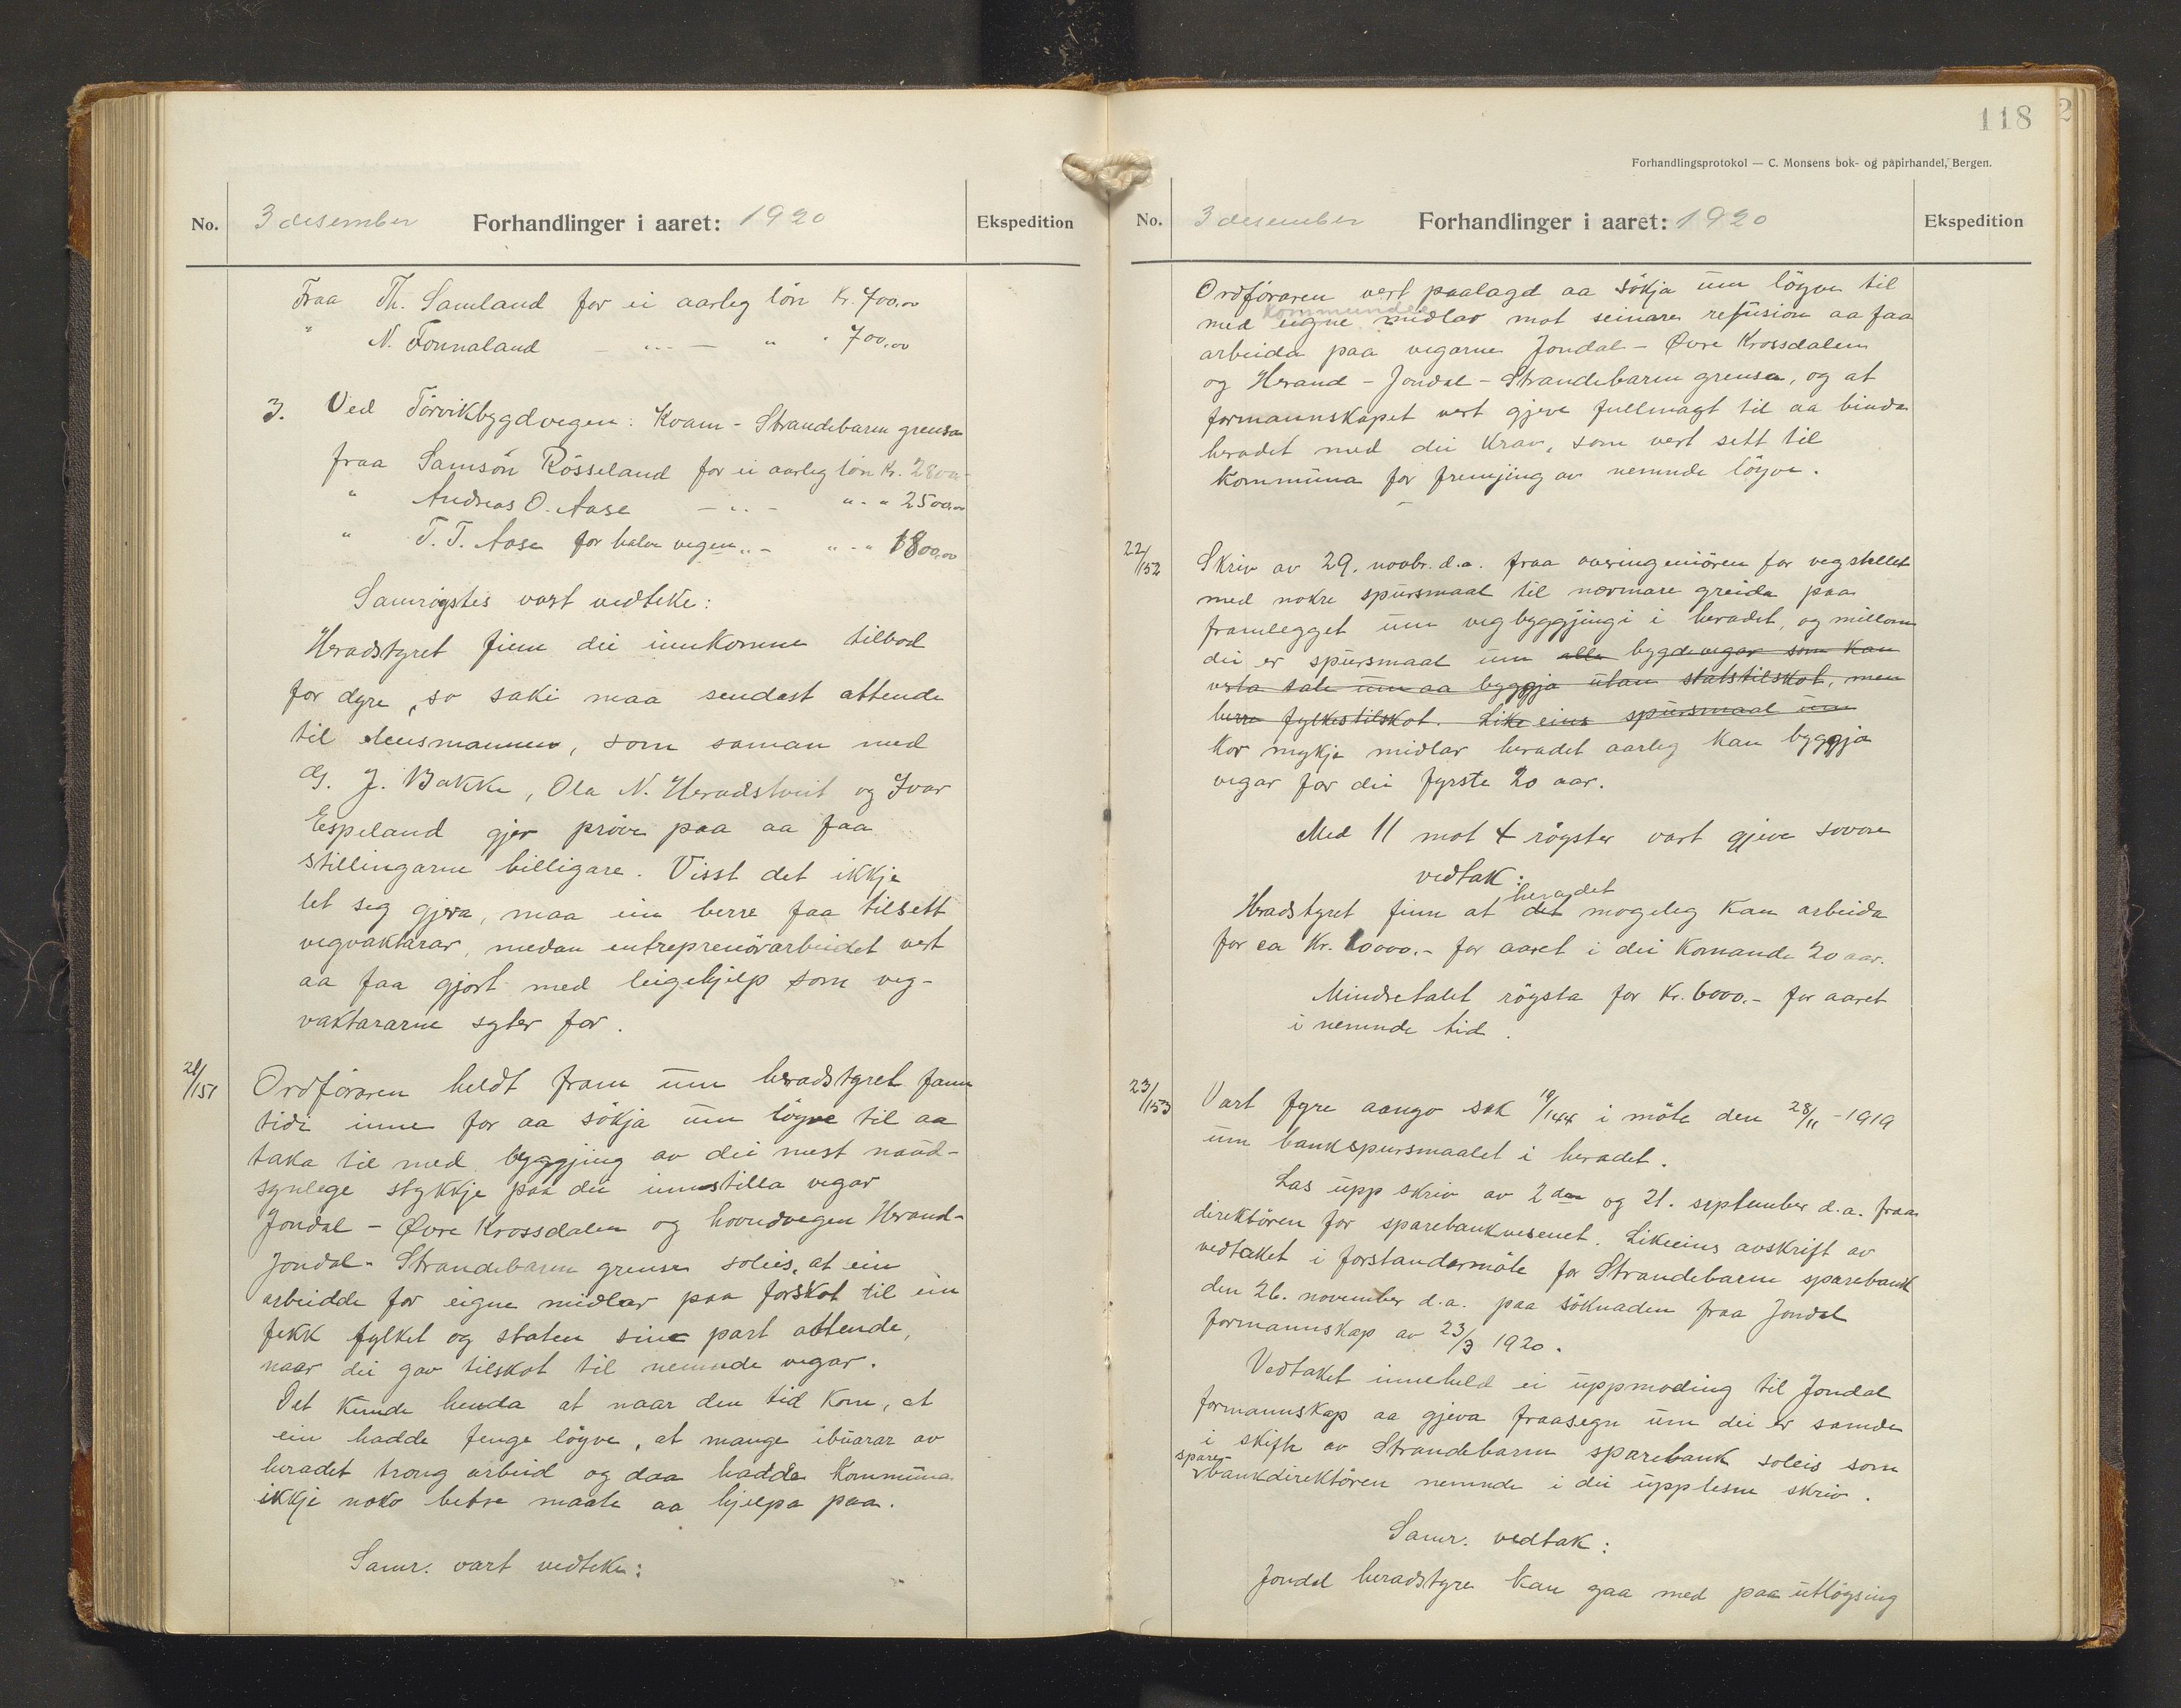 No. 3 desember Forhandlinger i aaret: 1920 Ekspedition
Fraa Th. Samland for ei aarleg løn Kr. 700,00
" N. Fonnaland — „ — " " 700,00
3. Ved Tørvikbygdvegen: Kvam - Strandebarm grensa
fraa Samsön Rösseland for ei aarleg lön Kr. 2800,-
" Andreas O. Aase — „ - „ - „ 2500,00
" T. T. Aase for halve vegen „ - „ - „ 1800,00
Samrøystes vart vedteke:
Heradstyret finn dei innkomne tilbod
for dyre, so saki maa sendast attende
til lensmannen, som saman med
G. J. Bakke, Ola N. Heradstveit og Ivar
Espeland gjer pröve paa aa faa
stillingarne billigare. Visst det ikkje
let seg gjera, maa ein berre faa tilsett
vegvaktarar, medan entreprenörarbeidet vert
aa faa gjort med leigehjelp som veg-
vaktararne syter for.
21/151 Ordföraren heldt fram um heradstyret fann
tidi inne for aa sökja um löyve til aa
taka til med byggjing av dei mest naud-
synlege stykkje paa dei innstilla vegar
Jondal - Øvre Krossdalen og hovudvegen Herand-
Jondal - Strandebarm grensa soleis, at ein
arbeidde for eigne midlar paa forskot til ein
fekk fylket og staten sine part attende,
naar dei gav tilskot til nemnde vegar.
Det kunde henda at naar den tid kom, at
ein hadde fenge löyve, at mange ibuarar av
heradet trong arbeid og daa hadde kommuna
ikkje noko betre maate aa hjelpa paa.
Samr. vart vedteke:
118
2
Forhandlingsprotokol — C. Monsens bok- og papirhandel, Bergen.
No. 3 desember Forhandlinger i aaret: 1920 Ekspedition
Ordføraren vert paalagd aa sökja um löyve til
kommunale
med eigne midlar mot seinare refusion aa faa
arbeida paa vegarne Jondal - Øvre Krossdalen
og Herand - Jondal - Strandebarm grensa, og at
formannskapet vert gjeve fullmagt til aa binda
heradet med dei krav, som vert sett til
kommuna for fremjing av nemnde löyve.
22/152 Skriv av 29. novbr. d.a. fraa overingeniören for vegstellet
med nokre spursmaal til nærmare greida paa
framlegget um vegbyggjingi i heradet, og millom
dei er spursmaal um alle bygdevegar som kan
verta tale um aa byggja utan statstilskot, men
berre fylkestilskot. Like eins spursmaal um
kor mykje midlar heradet aarleg kan byggja
vegar for dei fyrste 20 aar.
Med 11 mot 4 röyster vart gjeve sovore
vedtak:
heradet
Heradstyret finn at det mogeleg kan arbeida
for ca Kr. 10000.- for aaret i dei komande 20 aar.
Mindretalet röysta for Kr. 6000.- for aaret
i nemnde tid.
23/153 Vart fyre aango sak 19/144 i möte den 28/11 - 1919
um bankspursmaalet i heradet.
Las upp skriv av 2den og 21. september d.a. fraa
direktören for sparebankvesenet. Likeeins avskrift av
vedtaket i forstandermöte for Strandebarm sparebank
den 26. november d.a. paa söknaden fraa Jondal
formannskap av 23/3 1920.
Vedtaket inneheld ei uppmoding til Jondal
formannskap aa gjeva fraasegn um dei er samde
i skifte av Strandebarm sparebank soleis som
spare-
bankdirektören nemnde i dei upplesne skriv.
Samr. vedtak:
Jondal heradstyre kan gaa med paa utlöysing